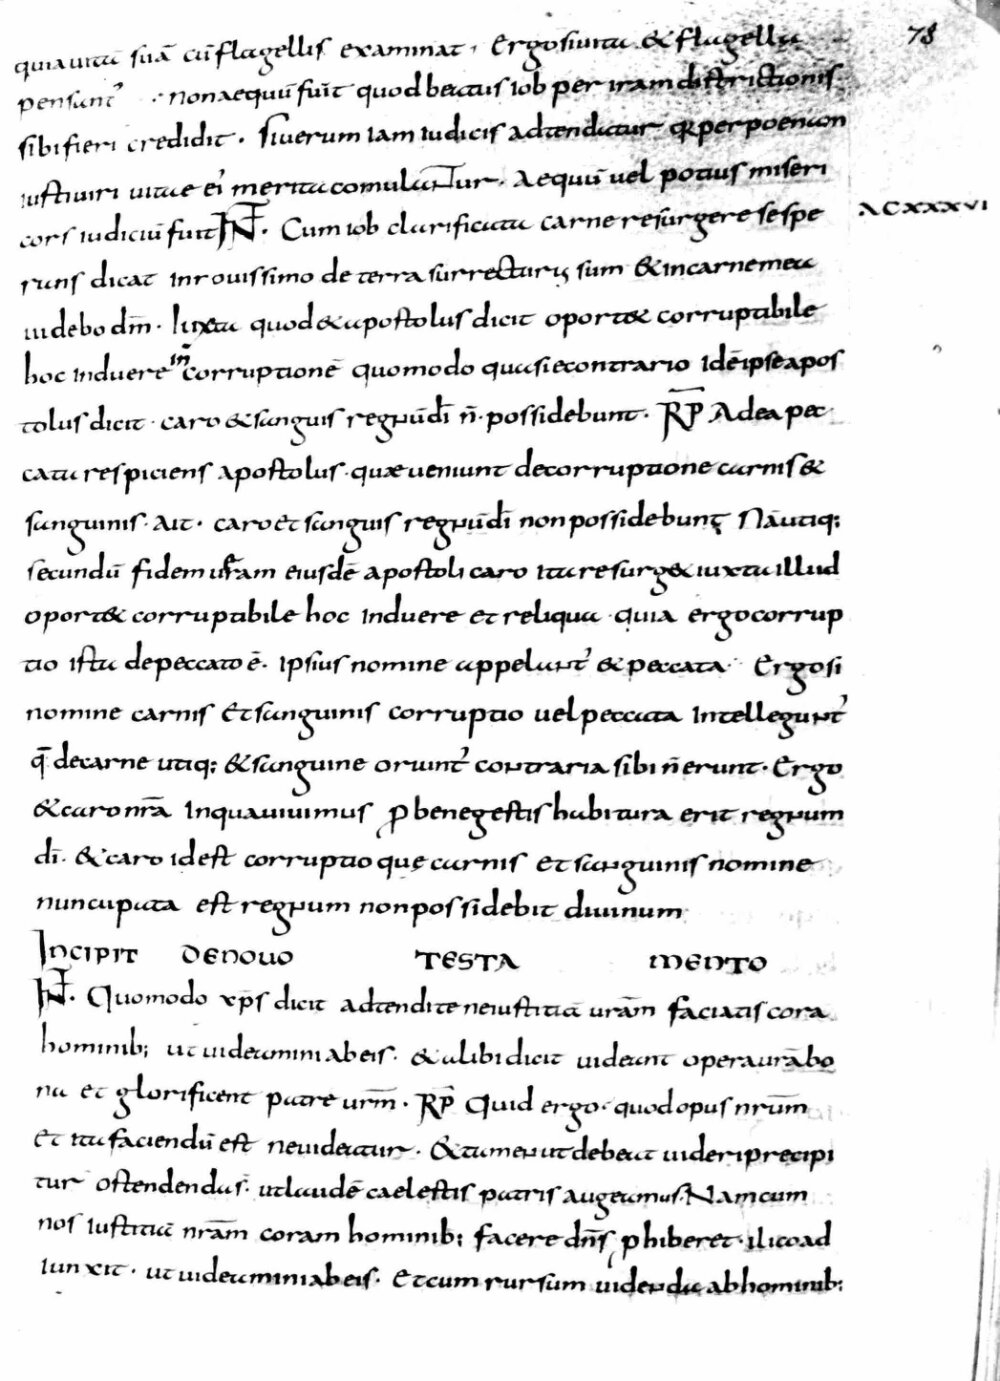 78
quia uitā suā cū flagellis examinat, Ergo si uita & flagella
pensant᷒ · non aequū fuit quod beatus iob per iram districtionis
sibi fieri credidit · Si uerum iam iudicis adtendatur qr̄ per poenam
iusti uiri uitae ei᷒ merita comulantur · Aequū uel potius miseri
cors iudiciū fuit ĪNT · Cum iob clarificata carne resurgere se spe
ACXXXVI
rans dicat in nouissimo de terra surrecturus sum & in carne mea
uidebo dm̄ · Iuxta quod & apostolus dicit oport& corruptibile
hoc induere in corruptionē quomodo quasi e contrario idē ipse apos
tolus dicit · caro & sanguis regnū dī n̄ · possidebunt · R̄P Ad ea pec
cata respiciens apostolus · quae ueniunt de corruptione carnis &
sanguinis · Ait · caro et sanguis regnū dī non possidebunt; Nā utiq;
secundū fidem ueram eiusdē apostoli caro ita resurg& iuxta illud
oport& corruptibile hoc induere et reliqua · quia ergo corrup
tio ista de peccato ē · ipsius nomine appelant᷒ & peccata · Ergo si
nomine carnis et sanguinis corruptio uel peccata intellegunt᷒
q̄ de carne utiq; & sanguine oriunt᷒ contraria sibi n̄ erunt · Ergo
& caro nr̄a in qua uiuimus p̄ bene gestis habitura erit regnum
dī · & caro id est corruptio quę carnis et sanguinis nomine
nuncupata est regnum non possidebit diuinum
INCIPIT DE NOUO TESTAMENTO
ĪNT · Quomodo xp̄s dicit adtendite ne iustitiā urām faciatis corā
hominib; ut uideamini ab eis · & alibi dicit uideant opera urā bo
na et glorificent patrē urm̄ · R̄P Quid ergo · quod opus nrūm
et ita faciendū est ne uideatur · & tamen ut debeat uideri precipi
tur ostendendas · ut laudē caelestis patris augeamus · Nam cum
nos iustitiā nrām coram hominib; facere dn̄s phiberet · ilico ad
iunxit · ut uideamini ab eis · Et cum rursum uidenda ab hominib;